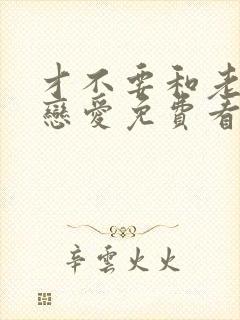 才不要和老
戀愛免費看
辛雲火火